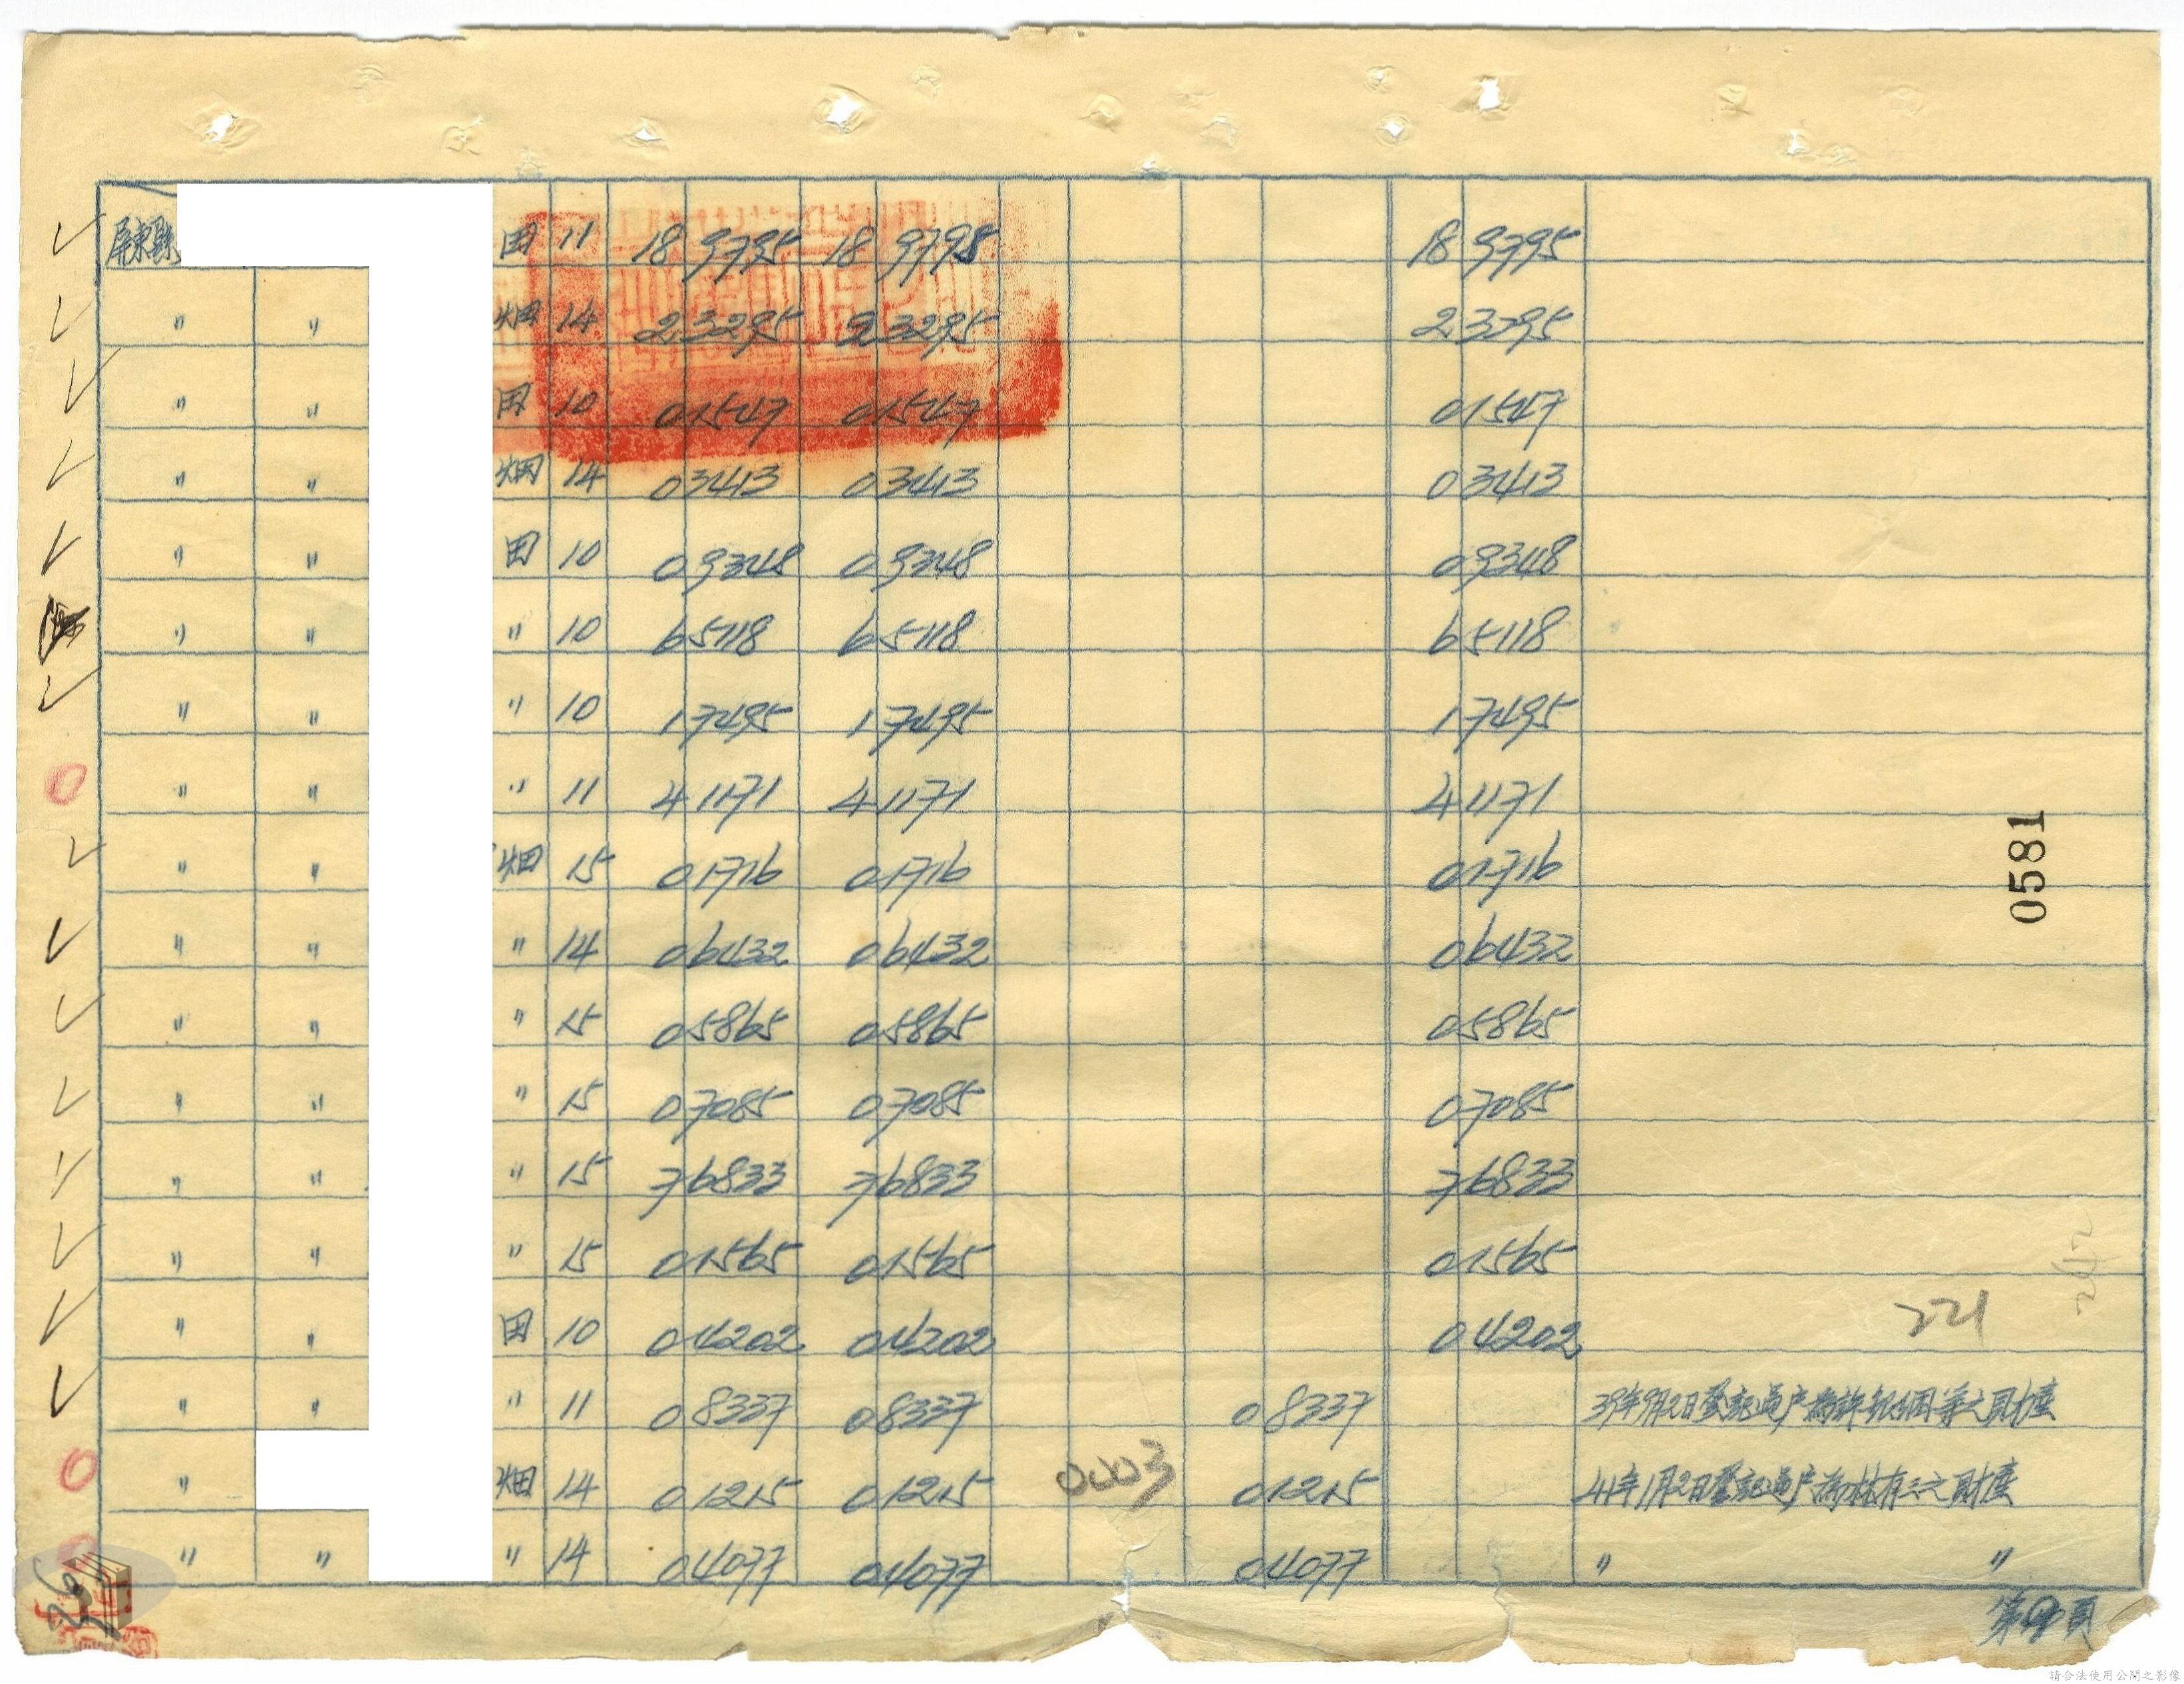 屏東縣 田 11 18 9795 18 9795 18 9795
〃 〃 畑 14 2 3295 2 3295 2 3295
〃 〃 田 10 0 1547 0 1547 0 1547
〃 〃 畑 14 0 3413 0 3413 0 3413
〃 〃 田 10 0 9348 0 9348 0 9348
〃 〃 〃 10 6 5118 6 5118 6 5118
〃 〃 〃 10 1 7495 1 7495 1 7495
〃 〃 〃 11 4 1171 4 1171 4 1171
〃 〃 畑 15 0 1716 0 1716 0 1716
〃 〃 〃 14 0 6432 0 6432 0 6432
〃 〃 〃 15 0 5865 0 5865 0 5865
〃 〃 〃 15 0 7085 0 7085 0 7085
〃 〃 〃 15 7 6833 7 6833 7 6833
〃 〃 〃 15 0 1565 0 1565 0 1565
〃 〃 田 10 0 4202 0 4202 0 4202
〃 〃 〃 11 0 8337 0 8337 0 8337 39年9月2日登記過户為許 等之財產
〃 畑 14 0 1215 0 1215 0 1215 41年1月2日登記過户為林有三之財產
〃 〃 〃 14 0 4077 0 4077 0 4077 〃 〃
0581
221
242
第9頁
請合法使用公開之影像